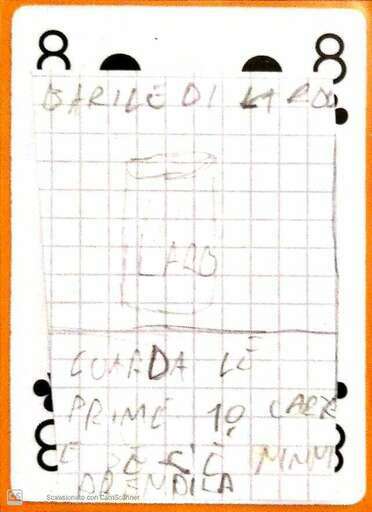 8 8
BARILE DI LARDO
LARD
GUARDA LE
PRIME 10 CARTE
E SE C'È
PRENDILA
Scansionato con CamScanner